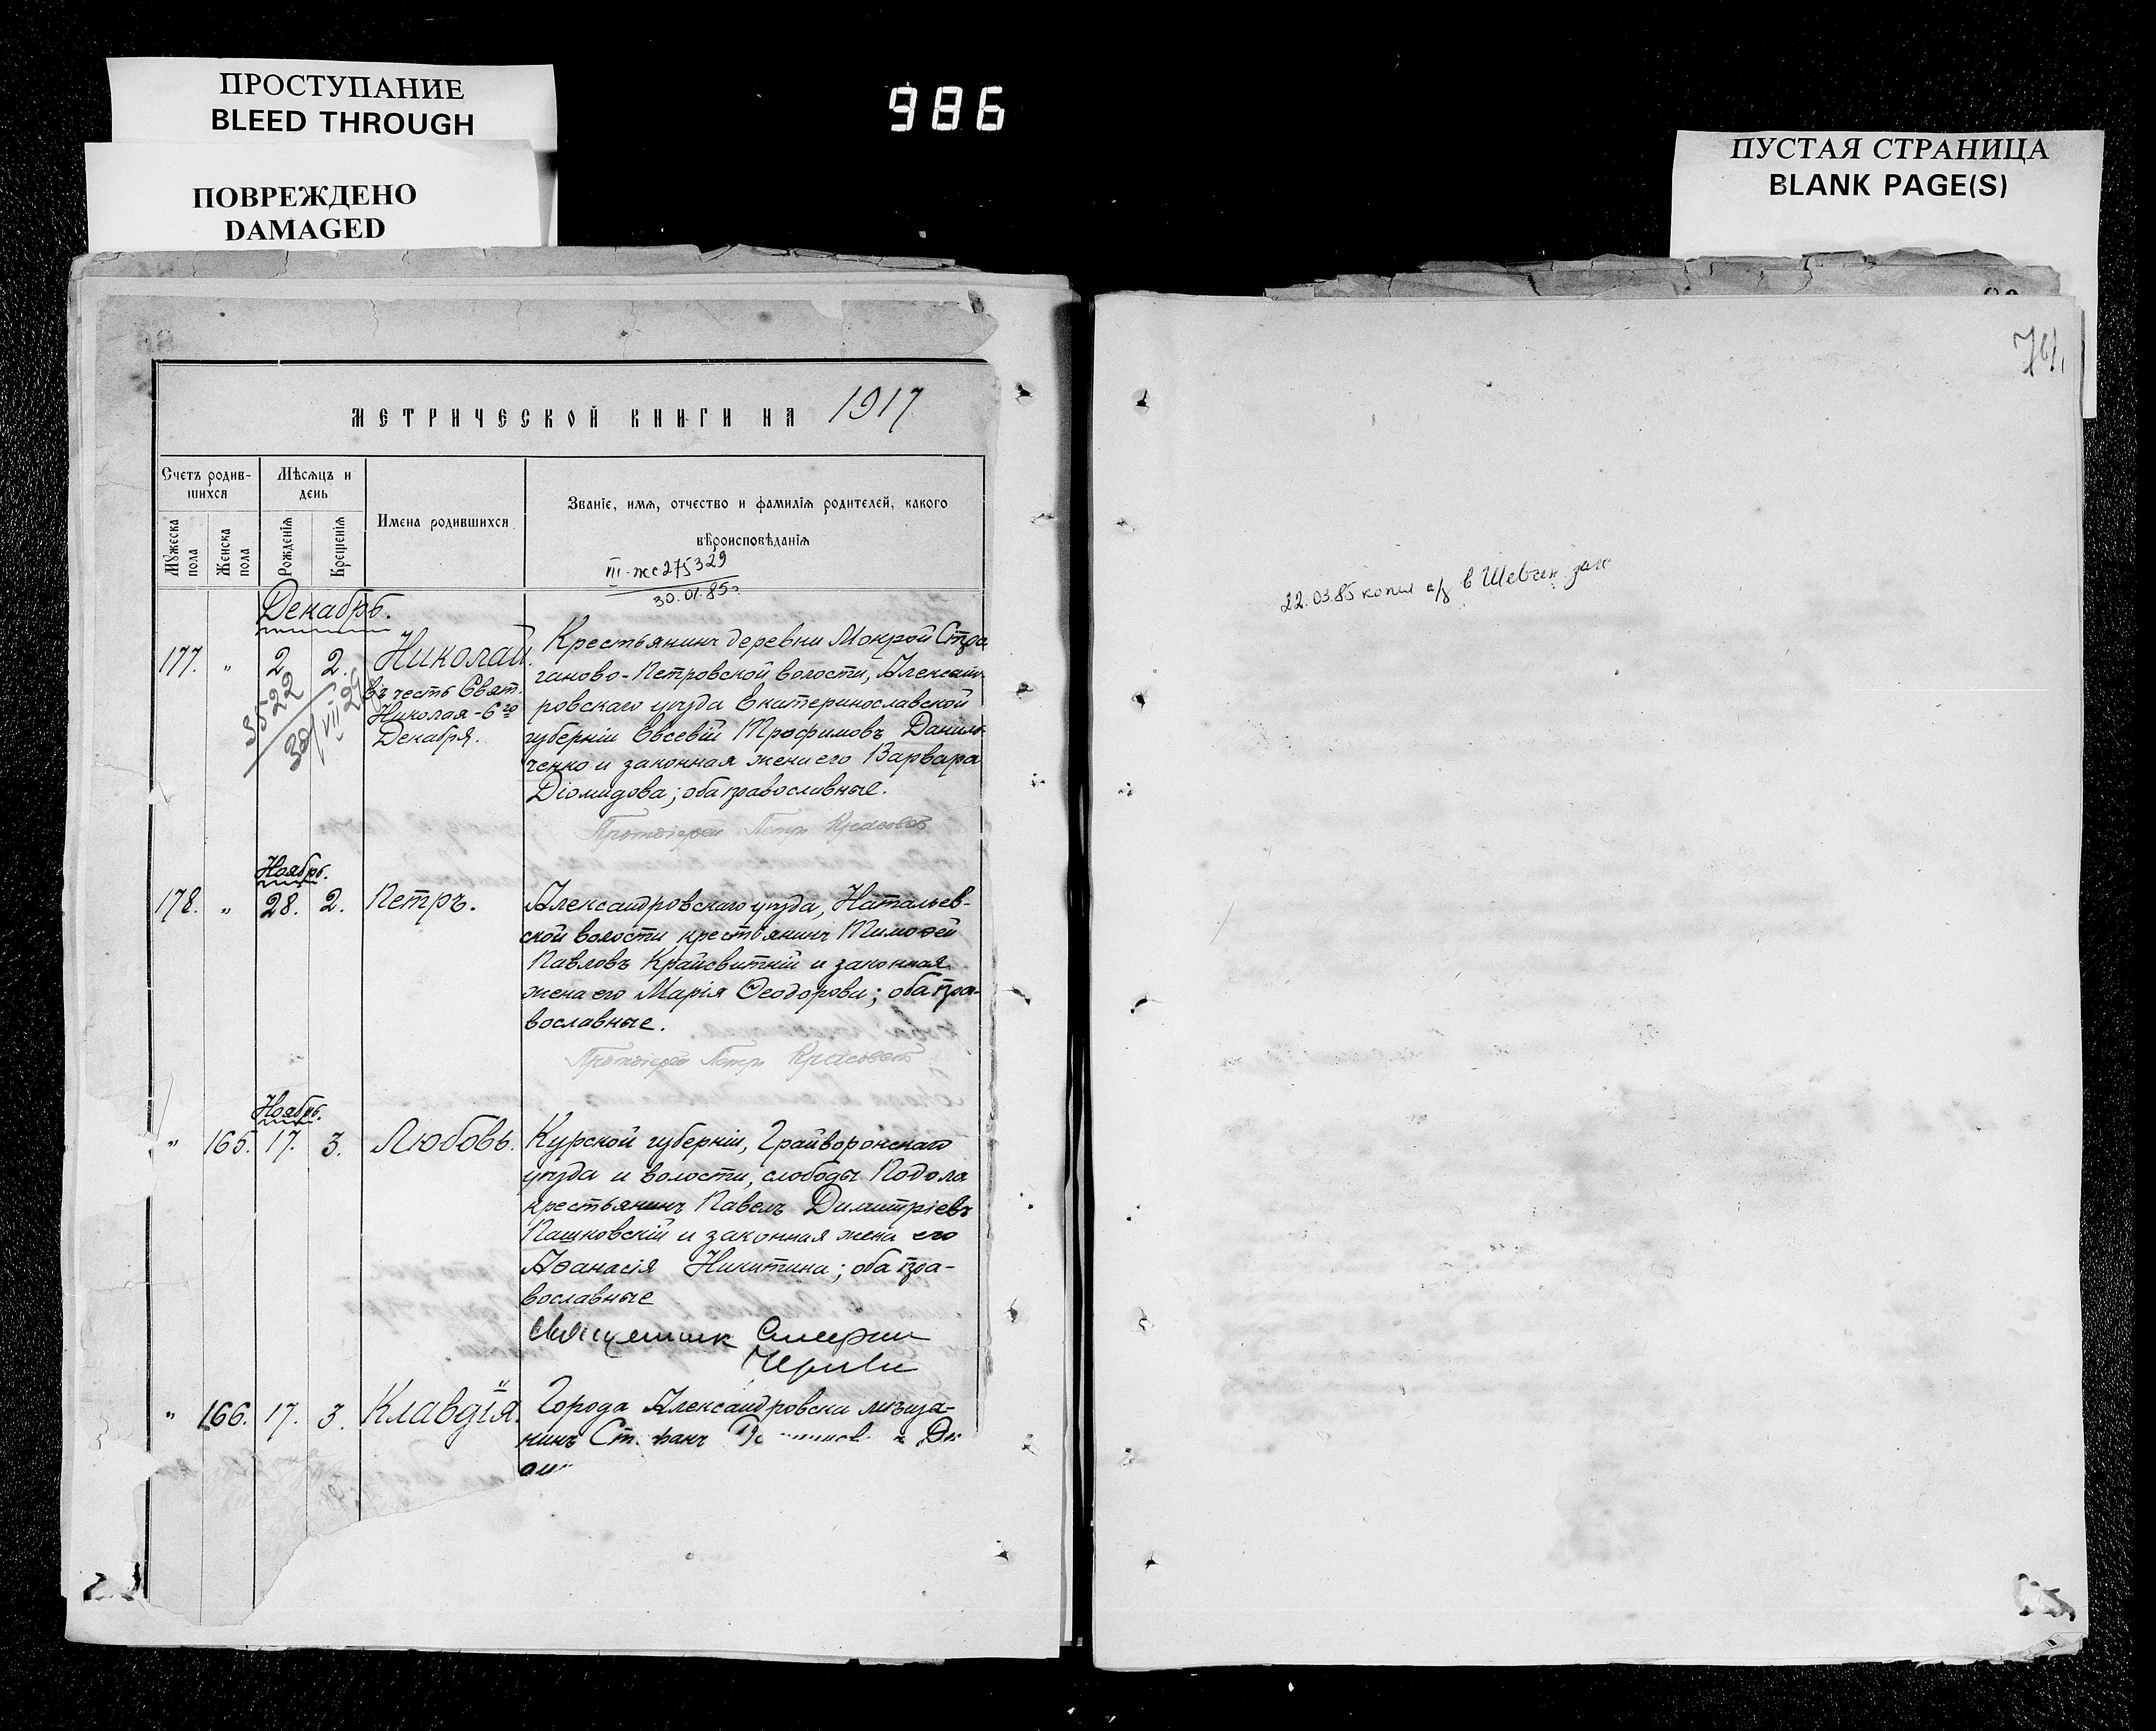 ПРОСТУПАНИЕ
BLEED THROUGH
ПОВРЕЖДЕНО
DAMAGED
986
ПУСТАЯ СТРАНИЦА
BLANK PAGE(S)
МЕТРИЧЕСКОЙ КНИГИ НА 1917
Счетъ родив-
шихся
Мѣсяцъ и
день
Мужеска
пола
Женска
пола
Рожденія
Крещенія
Имена родившихся
Званіе, имя, отчество и фамилія родителей, какого
вѣроисповѣданія
III-жс 275329
30.01.85г.
Декабрь.
177. " 2 2. Николай.
въ честь Свят.
Николая-6го
Декабря.
3522
30/VII
Крестьянинъ деревни Мокрой Стро
ганово-Петровской волости, Александ
ровскаго уѣзда Екатеринославской
губерніи Евсевій Трофимовъ Данил-
ченко и законная жена его Варвара
Діомидова; оба православные.
Протоіерей Петръ
Ноябрь.
178. " 28. 2. Петръ.
Александровскаго уѣзда, Натальев-
ской волости крестьянинъ Тимоѳей
Павловъ Крайсвитній и законная
жена его Марія Ѳеодорова; оба пра-
вославные.
Протоіерей Петръ
Ноябрь.
" 165. 17. 3. Любовь.
Курской губерніи, Грайворонскаго
уѣзда и волости, слободы Подола
крестьянинъ Павелъ Димитріевъ
Пашковскій и законная жена его
Аѳанасія Никитина; оба пра-
вославные
священник
" 166. 17. 3. Клавдія.
Города Александровска мѣща-
нинъ
74.
22.03.85 копия в Шевчен